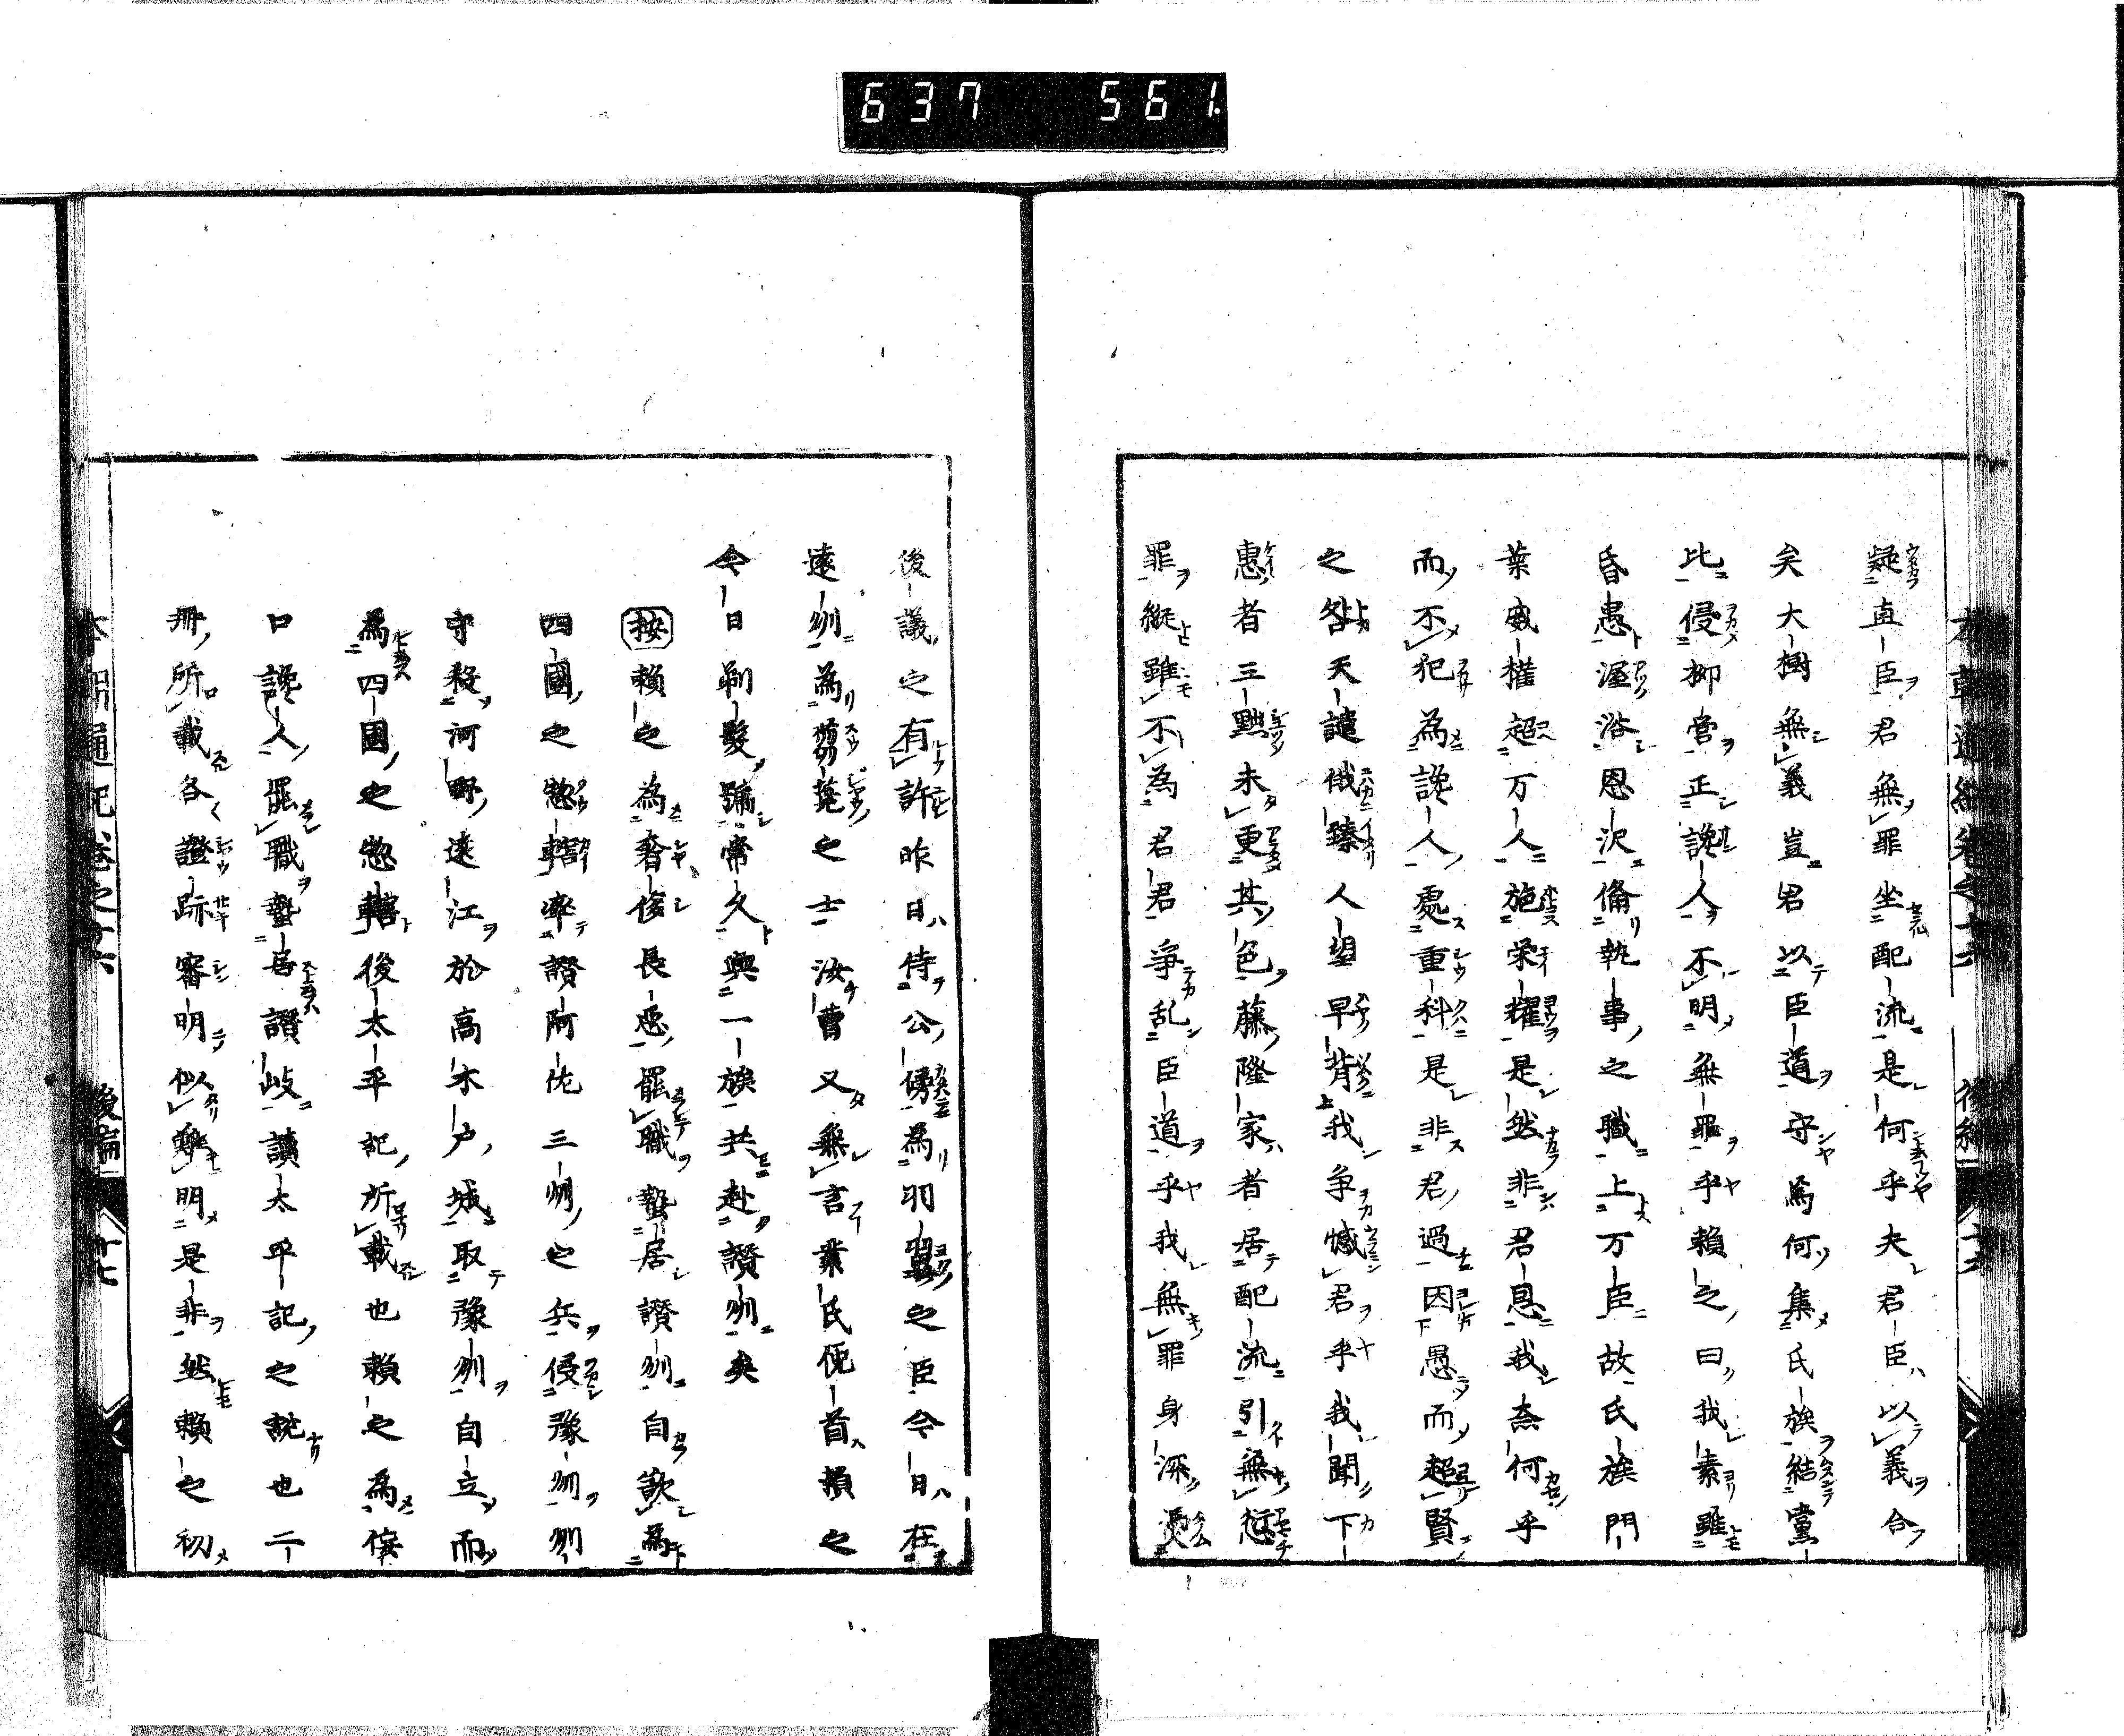 637 561
疑直臣君無罪坐配流是何乎夫君臣以義合
矣大樹無義豈君以臣道守為何集氏族結黨
比侵柳営正讒人不明無罪乎頼之曰我素雖
昏愚渥浴恩沢俻執事之職上万臣故氏族門
葉威権超万人施栄耀是然非君恩我奈何乎
而不犯為讒人処重科是非君過因愚而超賢
之咎天譴俄臻人望早背我争憾君乎我聞下
惠者三黜未更其色藤隆家者居配流引無愆
罪縦雖不為君君爭乱臣道乎我無罪身深燙
後議之有許昨日侍公傍為羽翼之臣今日在
遠刕為蒭蕘之士汝曹又無言葉氏俛首損之
今日剃髪号常久與一族共赴讃刕矣
按頼之為奢侈長悪罷職蟄居讃刕自歎為
四國之惣轄率讃阿佐三州之兵侵豫刕刕
守殺河野遠江於高木戸城取豫刕自立而
為四國之惣轄後太平記所載也頼之為倿
口讒人罷職蟄居讃岐讀太平記之説也二
冊所載各證跡審明似難明是非然頼之初
本朝通紀巻之十六 後編 十七